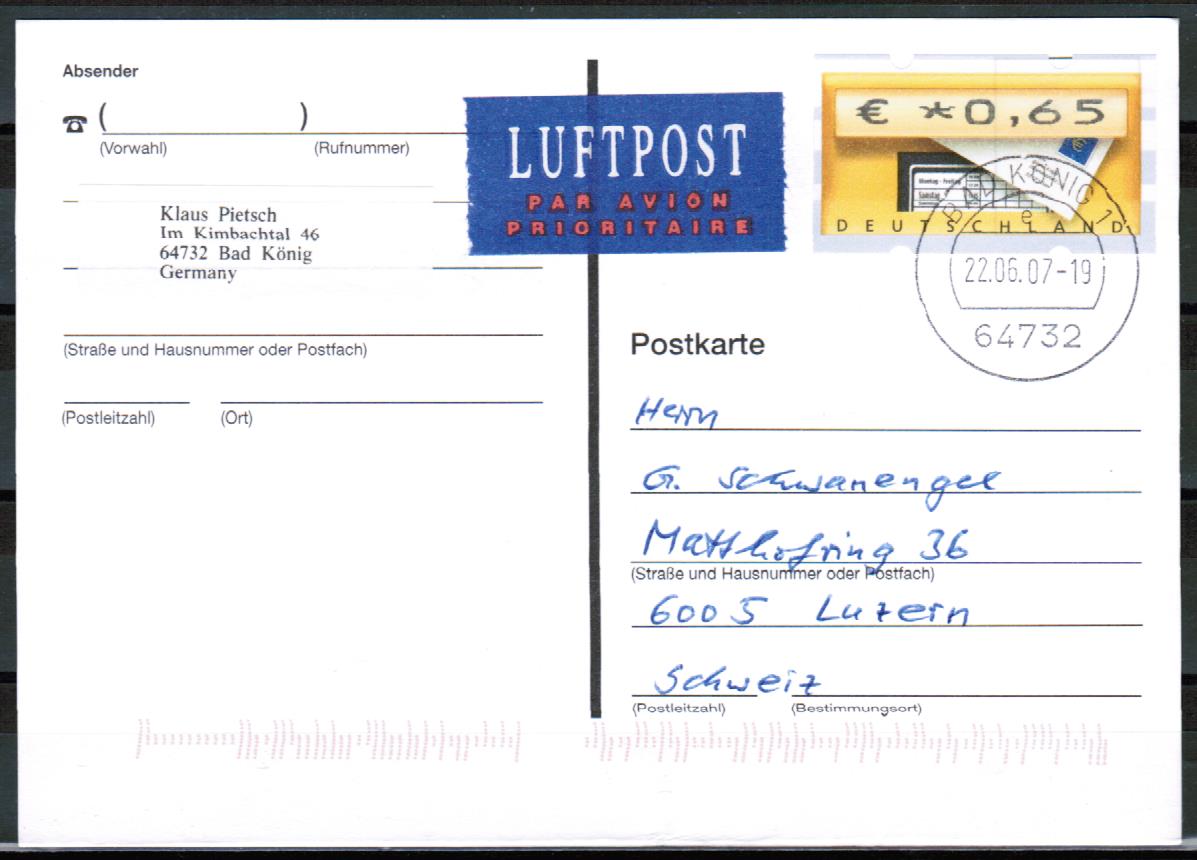 Absender
☎ ( )
(Vorwahl) (Rufnummer)
Klaus Pietsch
Im Kimbachtal 46
64732 Bad König
Germany
(Straße und Hausnummer oder Postfach)
(Postleitzahl) (Ort)
LUFTPOST
PAR AVION
PRIORITAIRE
€ *0,65
Montag - Freitag
Samstag
DEUTSCHLAND
BAD KÖNIG 1
e
22.06.07-19
64732
Postkarte
Herrn
G. Schwanengel
Matthofring 36
(Straße und Hausnummer oder Postfach)
6005 Luzern
Schweiz
(Postleitzahl) (Bestimmungsort)